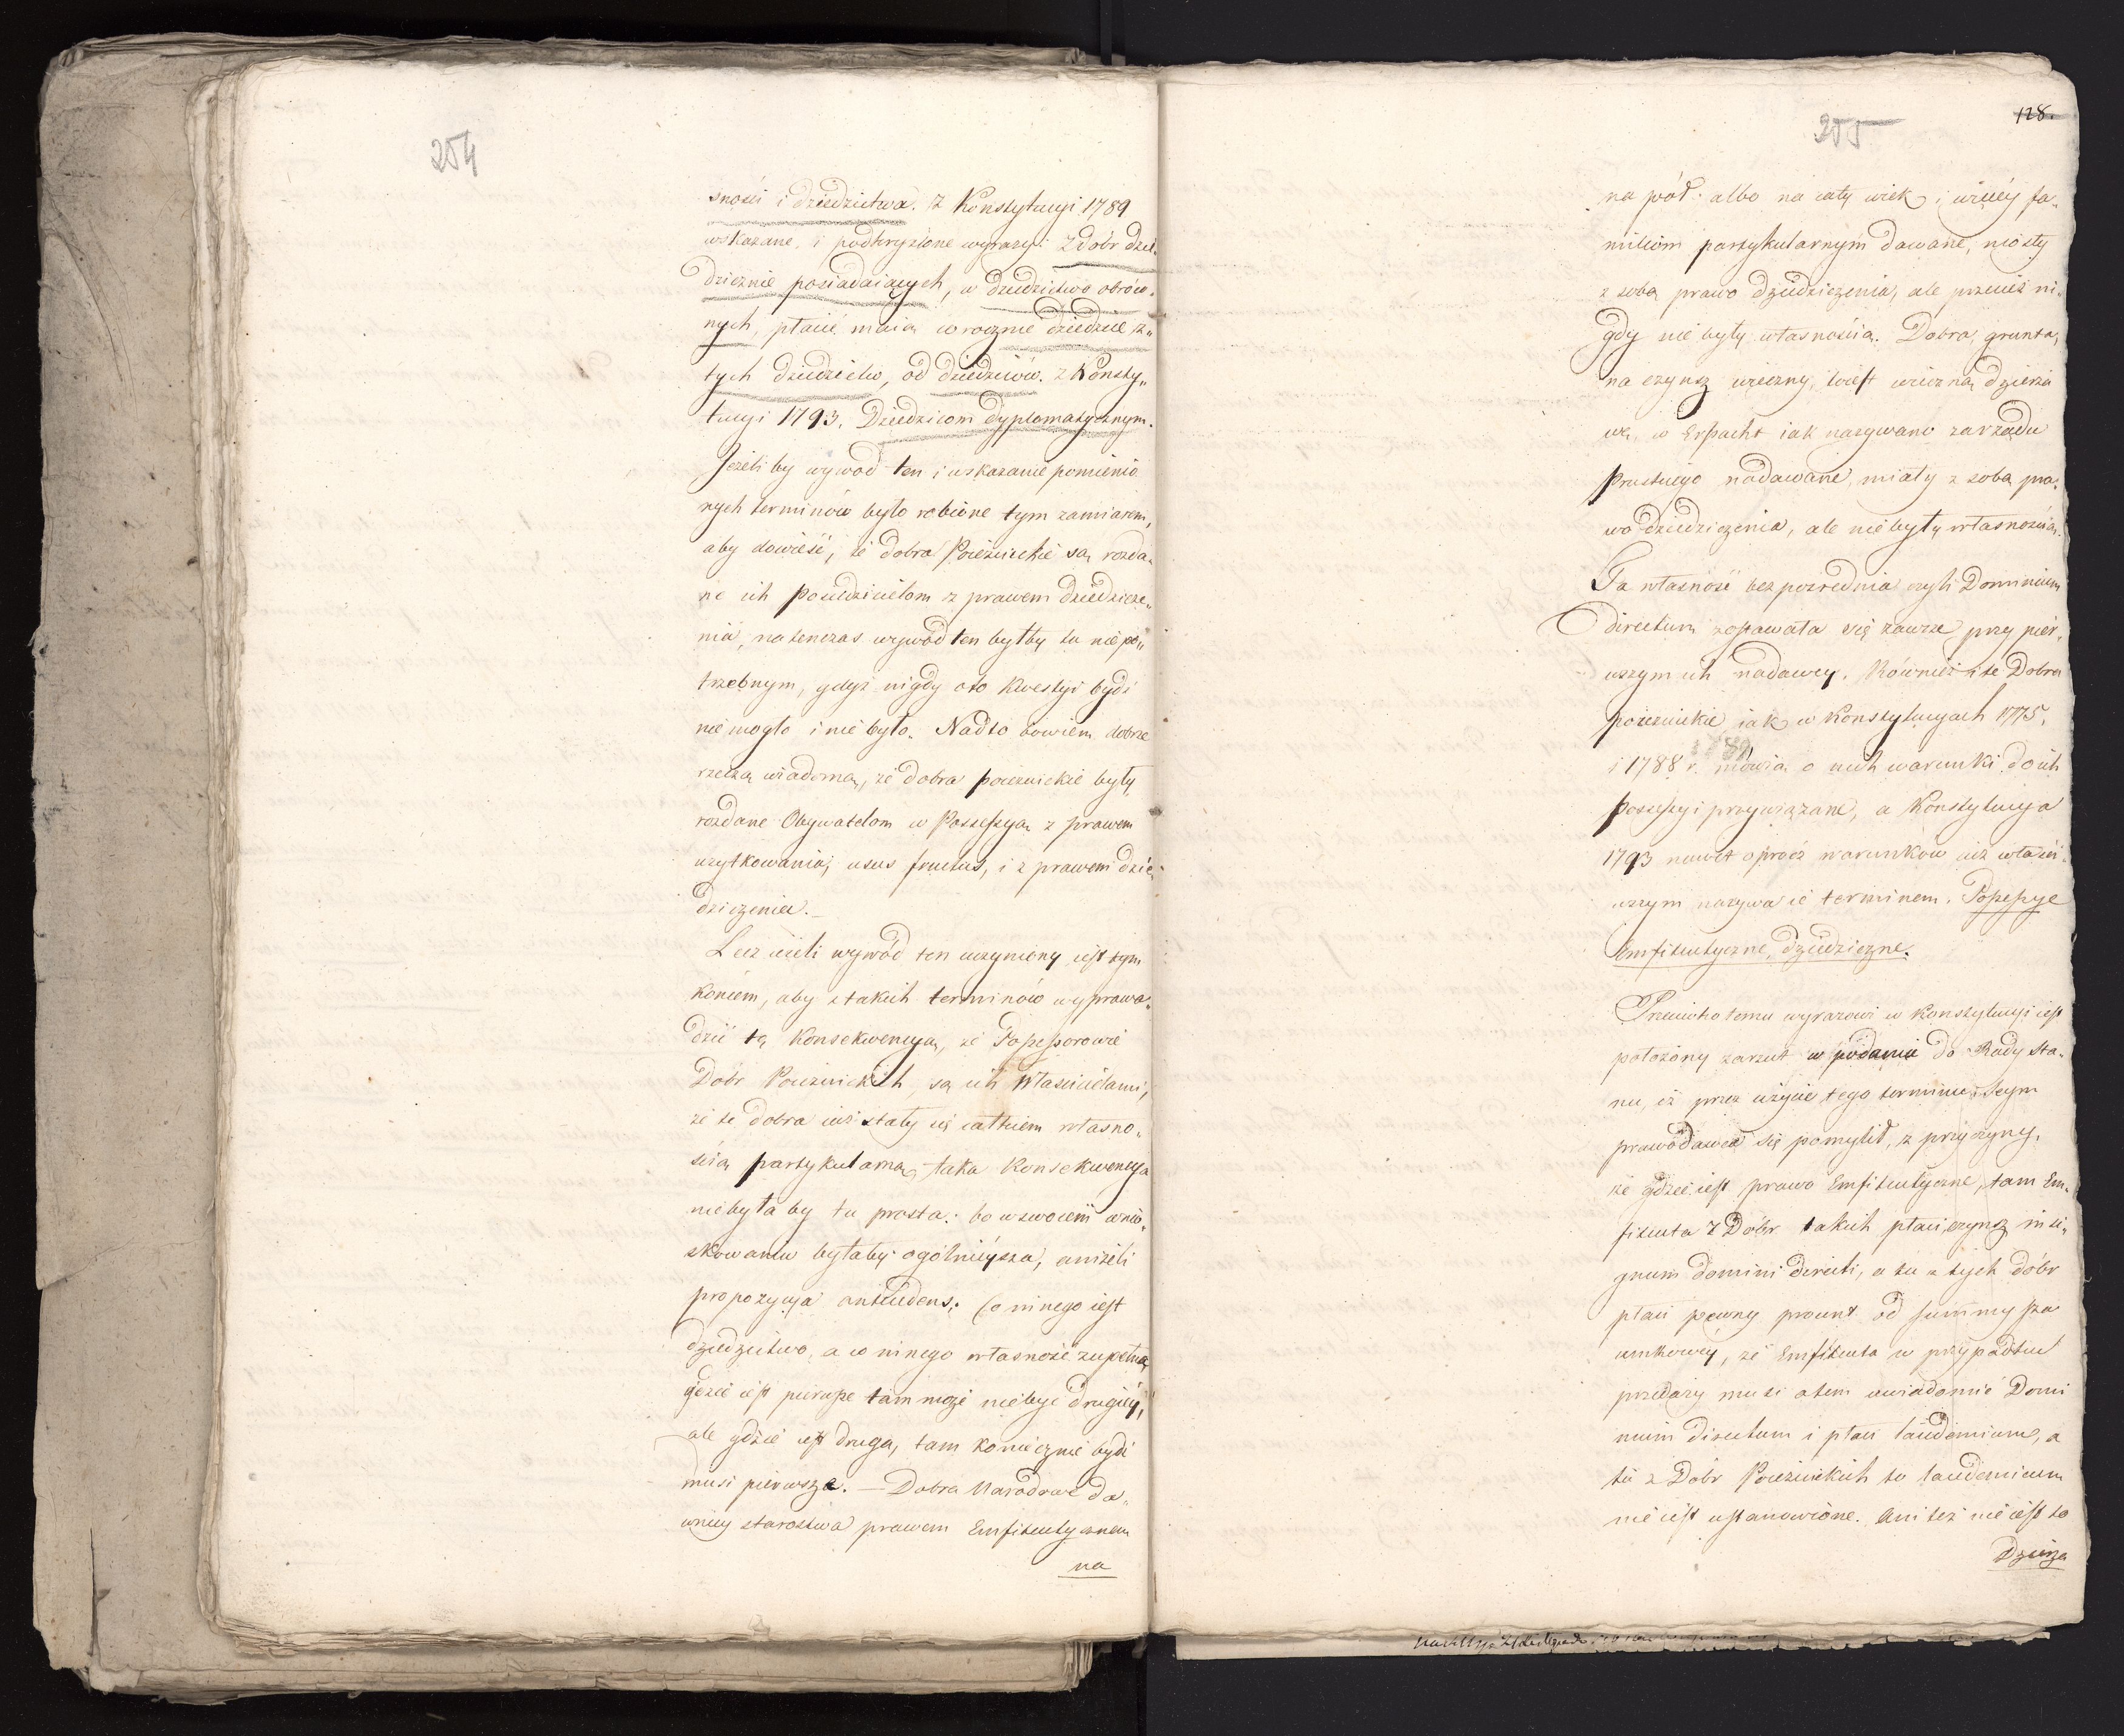 254
sności i dziedzictwa. Z Konstytucyi 1789
wskazane, i podkryślone wyrazy: z dóbr dzie„
dzicznie posiadaiących, w dziedzictwo obróco„
nych, płacić maią corocznie dziedzice z„
tych dziedzictw, od dziedziców. z Konsty„
tucyi 1793. Dziedzicom dyplomatycznym.
Jeżeli by wywod ten i wskazanie pomienio
nych terminów było robione tym zamiarem,
aby dowieść, że dobra Poiezuickie są rozda„
ne ich Posiedzicielom z prawem dziedzicze„
nia, natenczas wywód ten byłby tu niepo„
trzebnym, gdyż nigdy oto kwestyi bydź
nie mogło i nie było. Nadto bowiem dobrze
rzeczą wiadomą, że dobra poiezuickie były
rozdane Obywatelom w Possessyą z prawem
użytkowania, usus fructus, i z prawem dzie„
dziczenia.
Lecz ieżeli wywód ten uczyniony iest tym
końcem, aby z takich terminów wyprowa„
dzić tę konsekwencyą, że Possessorowie
Dóbr Poiezuickich, są ich Właścicielami,
że te dobra iuż stały się całkiem własno„
ścią partykularną, taka konsekwencya
niebyła by tu prosta: bo w swoiem wnio„
skowaniu byłaby ogólnieysza, aniżeli
propozycya antecedens. Co innego iest
dziedzictwo, a co innego własność zupełna,
gdzie iest pierwsze tam może niebyć drugiéy,
ale gdzie iest druga, tam koniecznie bydź
musi pierwsze. — Dobra Narodowe da„
wniey starostwa prawem Emfiteutycznem
na
255
128.
na pół albo na cały wiek i więcéy fa„
miliom partykularnym dawane, niosły
z sobą prawo dziedziczenia, ale przecież ni„
gdy nie były własnością. Dobra, grunta,
na czynsz wieczny, iest wieczną dzierża
wę, w Erpacht iak nazywano za rządu
Pruskiego nadawane, miały z sobą pra„
wo dziedziczenia, ale nie były własnością.
Ta własność bezpośrednia czyli Dominium
directum zostawała się zawsze przy pier„
wszym ich nadawcy. Również i te Dobra
poiezuickie iak w Konstytucyach 1775,
1789
i 1788 r. mówią o nich warunki do ich
possessyi przywiązane, a Konstytucya
1793 nawet oprócz warunków iuż właści„
wszym nazywa ie terminem. Possessye
Emfiteutyczne, dziedziczne.
Przeciwko temu wyrazowi w Konstytucyi iest
położony zarzut w podaniu do Rady Sta„
nu, iż przez użycie tego terminu Seym
prawodawca się pomylił, z przyczyny,
że gdzie iest prawo Emfiteutyczne, tam Em„
fiteuta z Dóbr takich płaci czynsz in si„
gnum domini directi, a tu z tych dóbr
płaci pewny procent od summy sza
cunkowéy, że Emfiteuta w przypadku
przedaży musi otem uwiadomić Domi
nium directum i płaci laudemium, a
tu z Dóbr Poiezuickich to laudemium
nie iest ustanowione. Ani też nie iest to
Dzierża